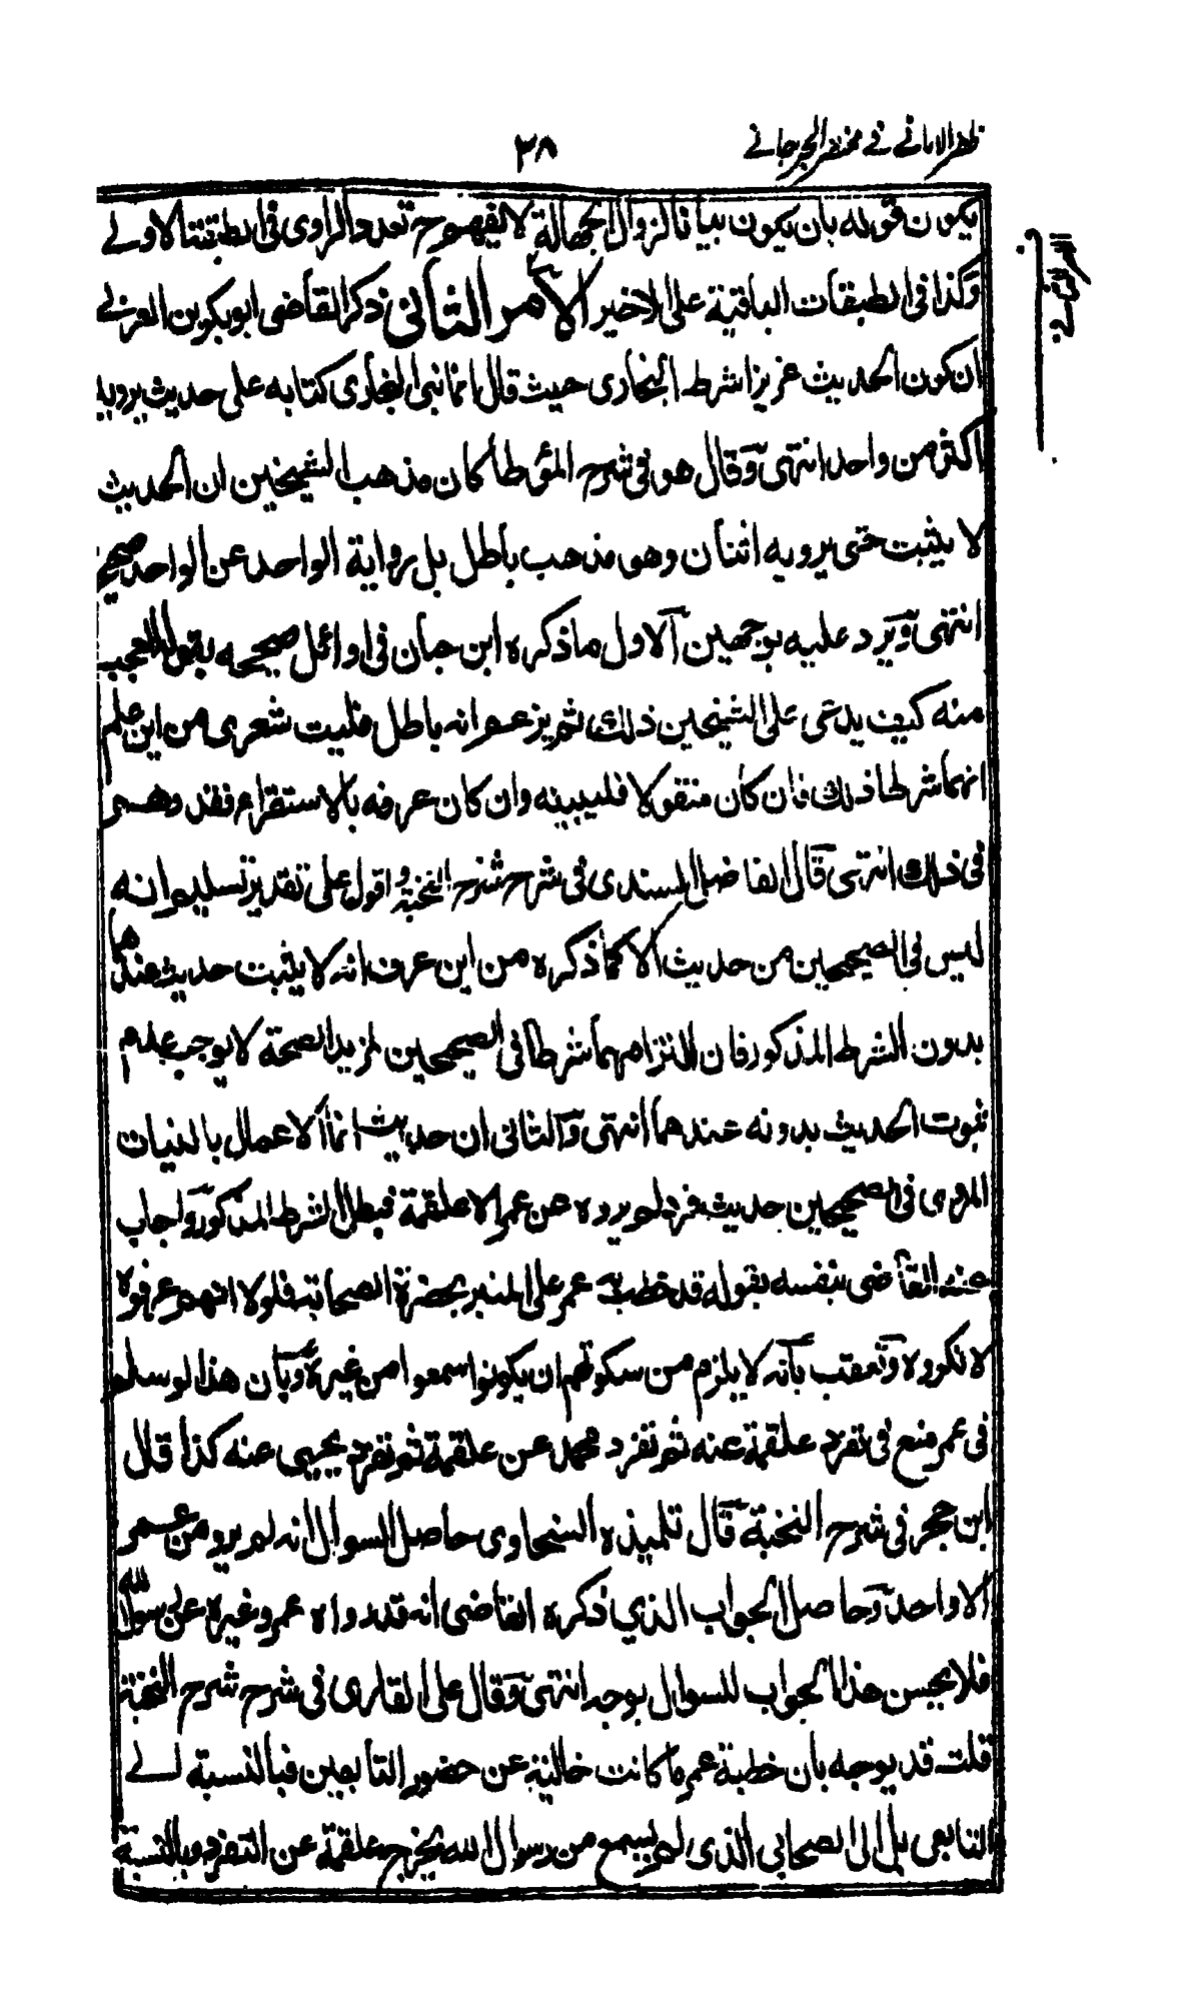 ظفر الامانے فے مختصر الجرجانے
۳۸
يكون قوله بان يكون بيانا لزوال الجهالة لا يفهم ح تعدد الراوى فى الطبقة الاولے
وكذا فى الطبقات الباقية على الاخير الامر الثانى ذكر القاضى ابو بكر بن العربے
ان كون الحديث عزيزا شرط البخارى حيث قال انما نبى البخارى كتابه على حديث يرويه
اكثر من واحد انتهى وقال هو فى شرح المؤطا كان مذهب الشيخين ان الحديث
لا يثبت حتى يرويه اثنان وهو مذهب باطل بل رواية الواحد عن الواحد صحيح
انتهى ويرد عليه بوجهين الاول ما ذكره ابن حبان فى اوائل صحيحه بقوله العجب
منه كيف يدعى على الشيخين ذلك ثم يزعم انه باطل فليت شعرى من اين علم
انهما شرطا ذلك فان كان منقولا فليبينه وان كان عرفه بالاستقراء فقد وهم
فى ذلك انتهى قال الفاضل السندى فى شرح شرح النخبة و اقول على تقدير تسليم انه
ليس فى الصحيحين من حديث الا كما ذكره من اين عرف انه لا يثبت حديث عندهما
بدون الشرط المذكور فان التزامهما شرطا فى الصحيحين لمزيد الصحة لا يوجب عدم
ثبوت الحديث بدونه عندهما انتهى والثانى ان حديث انما الاعمال بالنيات
المروى فى الصحيحين حديث فرد لم يروه عن عمر الا علقمة فبطل الشرط المذكور واجاب
عنه القاضى بنفسه بقوله قد خطب به عمر على المنبر بحضرة الصحابة فلولا انهم عرفوه
لانكروه وتعقب بانه لا يلزم من سكوتهم ان يكونوا سمعوا من غيره وبان هذا لو سلم
فى عمر منع فى تفرد علقمة عنه ثم تفرد محمد عن علقمة ثم تفرد يحيى عنه كذا قال
ابن حجر فى شرح النخبة قال تلميذه السخاوى حاصل السوال انه لم يرو من عمر
الا واحد وحاصل الجواب الذى ذكره القاضى انه قد رواه عمر وغيره عن رسول الله
فلا يحسن هذا الجواب للسوال بوجه انتهى وقال على القارى فى شرح شرح النخبة
قلت قد يوجه بان خطبة عمر ما كانت خالية عن حضور التابعين فبالنسبة الے
التابعى بل الى الصحابى الذى لم يسمع من رسول الله يخرج علقمة عن التفرد وبالنسبة